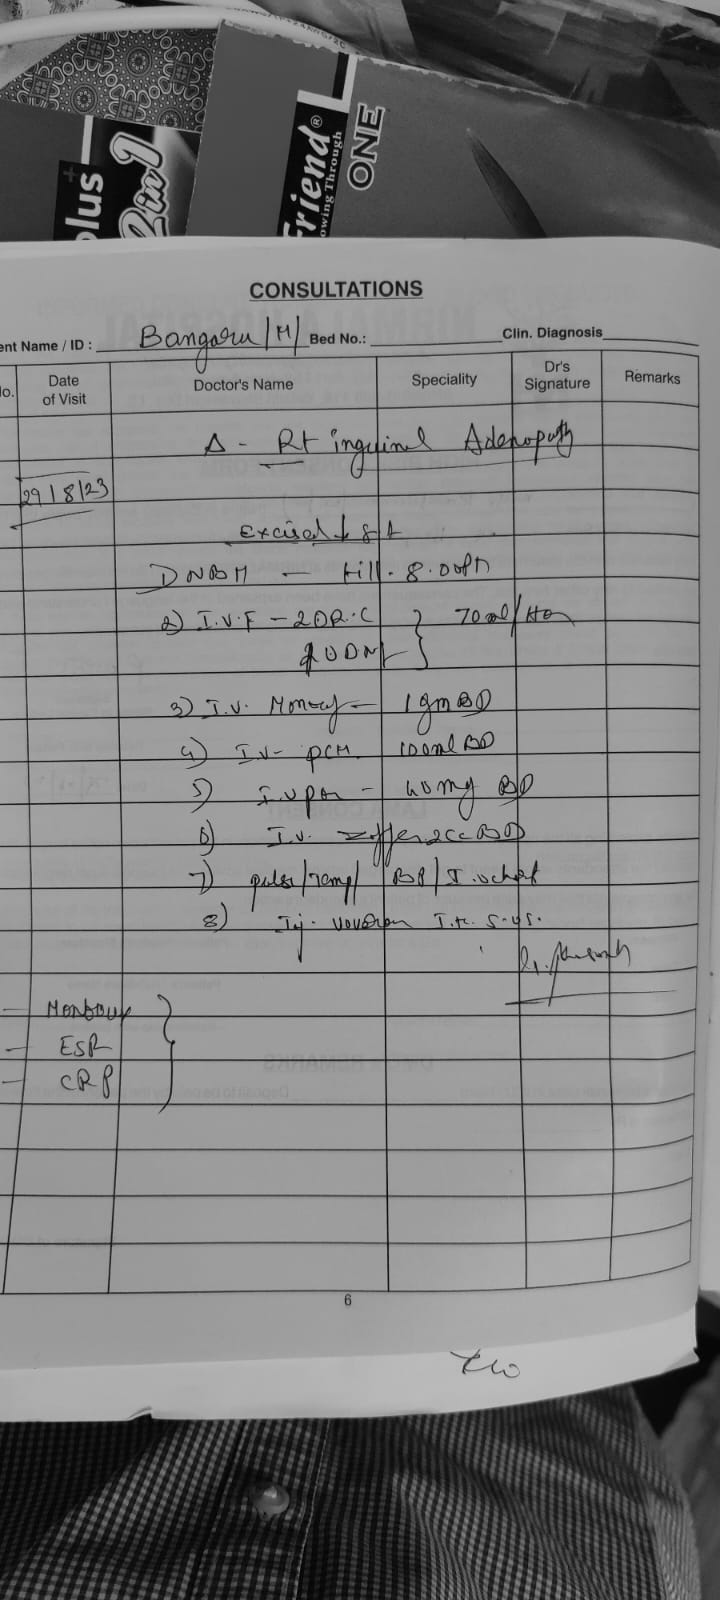 plus+
2in1
Friend®
owing Through
ONE
CONSULTATIONS
ent Name / ID : Bangaru/M/ Bed No.: Clin. Diagnosis
No. Date of Visit Doctor's Name Speciality Dr's Signature Remarks
Δ - Rt inguinal Adenopathy
29/8/23
Excised
till - 8.00PM
2) I.V.F - 70ml/
3) I.V. - 1gm BD
4) I.V- PCM 100ml BD
5) I.V - 40mg BD
6) I.V. 2cc BD
7) pulse/Temp/ BP/I.
8) Inj. Voveran
- Mantoux
- ESR
- CRP
6